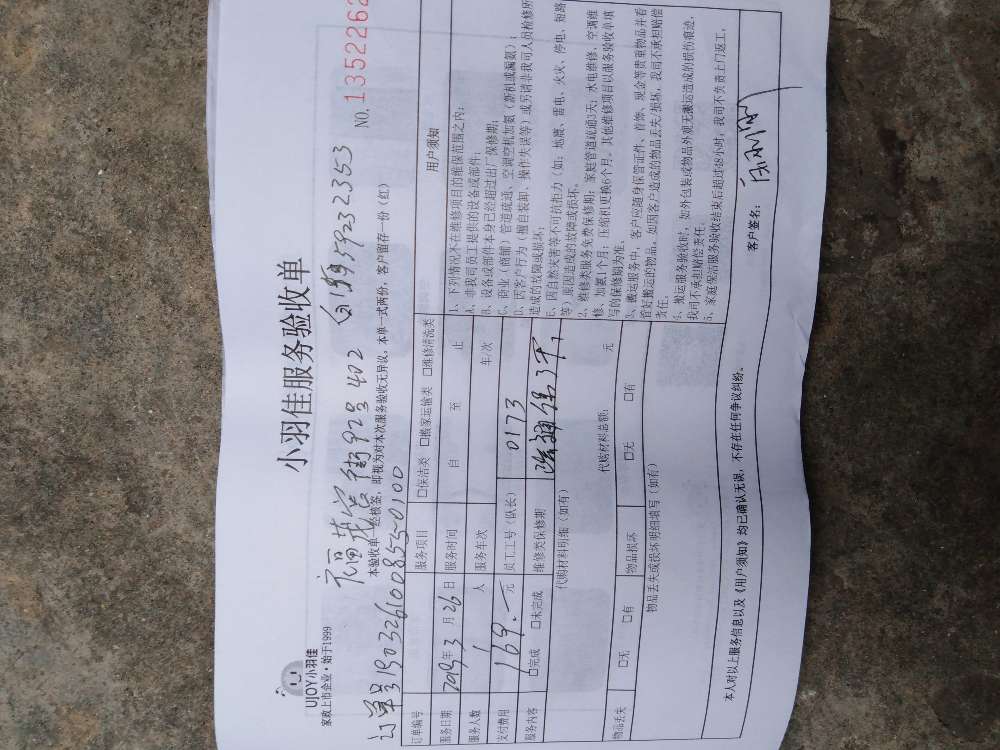 UJOY小羽佳
家政上市企业·始于1999
小羽佳服务验收单
福茂宫街92号402
15959232353
NO. 1352262
本验收单一经核签，即视为对本次服务验收无异议。本单一式两份，客户留存一份（红）
订单号190326100855-0100
订单编号
服务项目 □保洁类 □搬家运输类 □维修清洗类
服务日期 2019年3月26日
服务时间 自 至 止
服务人数 1 人
服务车次 车/次
支付费用 169.一元
员工工号（队长） 0173
服务内容 □完成 □未完成
维修类保修期 疏通保3天.
代购材料明细（如有）
代购材料总额： 元
物品丢失 □无 □有
物品损坏 □无 □有
物品丢失或损坏明细填写（如有）
用户须知
1、下列情况不在维修项目的维保范围之内：
A、非我司员工提供的设备或部件；
B、设备或部件本身已经超过出厂保修期；
C、商业（商铺）管道疏通、空调空机加氨（新机或漏氨）；
D、因客户行为（擅自装卸、操作失误等）或另请非我司人员检修所
造成的故障或损坏；
E、因自然灾害等不可抗拒力（如：地震、雷电、火灾、停电、短路
等）原因造成的故障或损坏。
2、维修类服务免费保修期：家庭管道疏通3天；水电维修、空调维
修、加氨1个月；压缩机更换6个月。其他维修项目以服务验收单填
写的保修期为准。
3、搬运服务中，客户应随身保管证件、首饰、现金等贵重物品并看
管好搬运的物品，如因客户造成的物品丢失/损坏，我司不承担赔偿
责任。
4、搬运服务验收时，如外包装或物品外观无搬运造成的损伤痕迹，
我司不承担赔偿责任。
5、家庭保洁服务验收结束后超过48小时，我司不负责上门返工。
本人对以上服务信息以及《用户须知》均已确认无误，不存在任何争议纠纷。
客户签名：